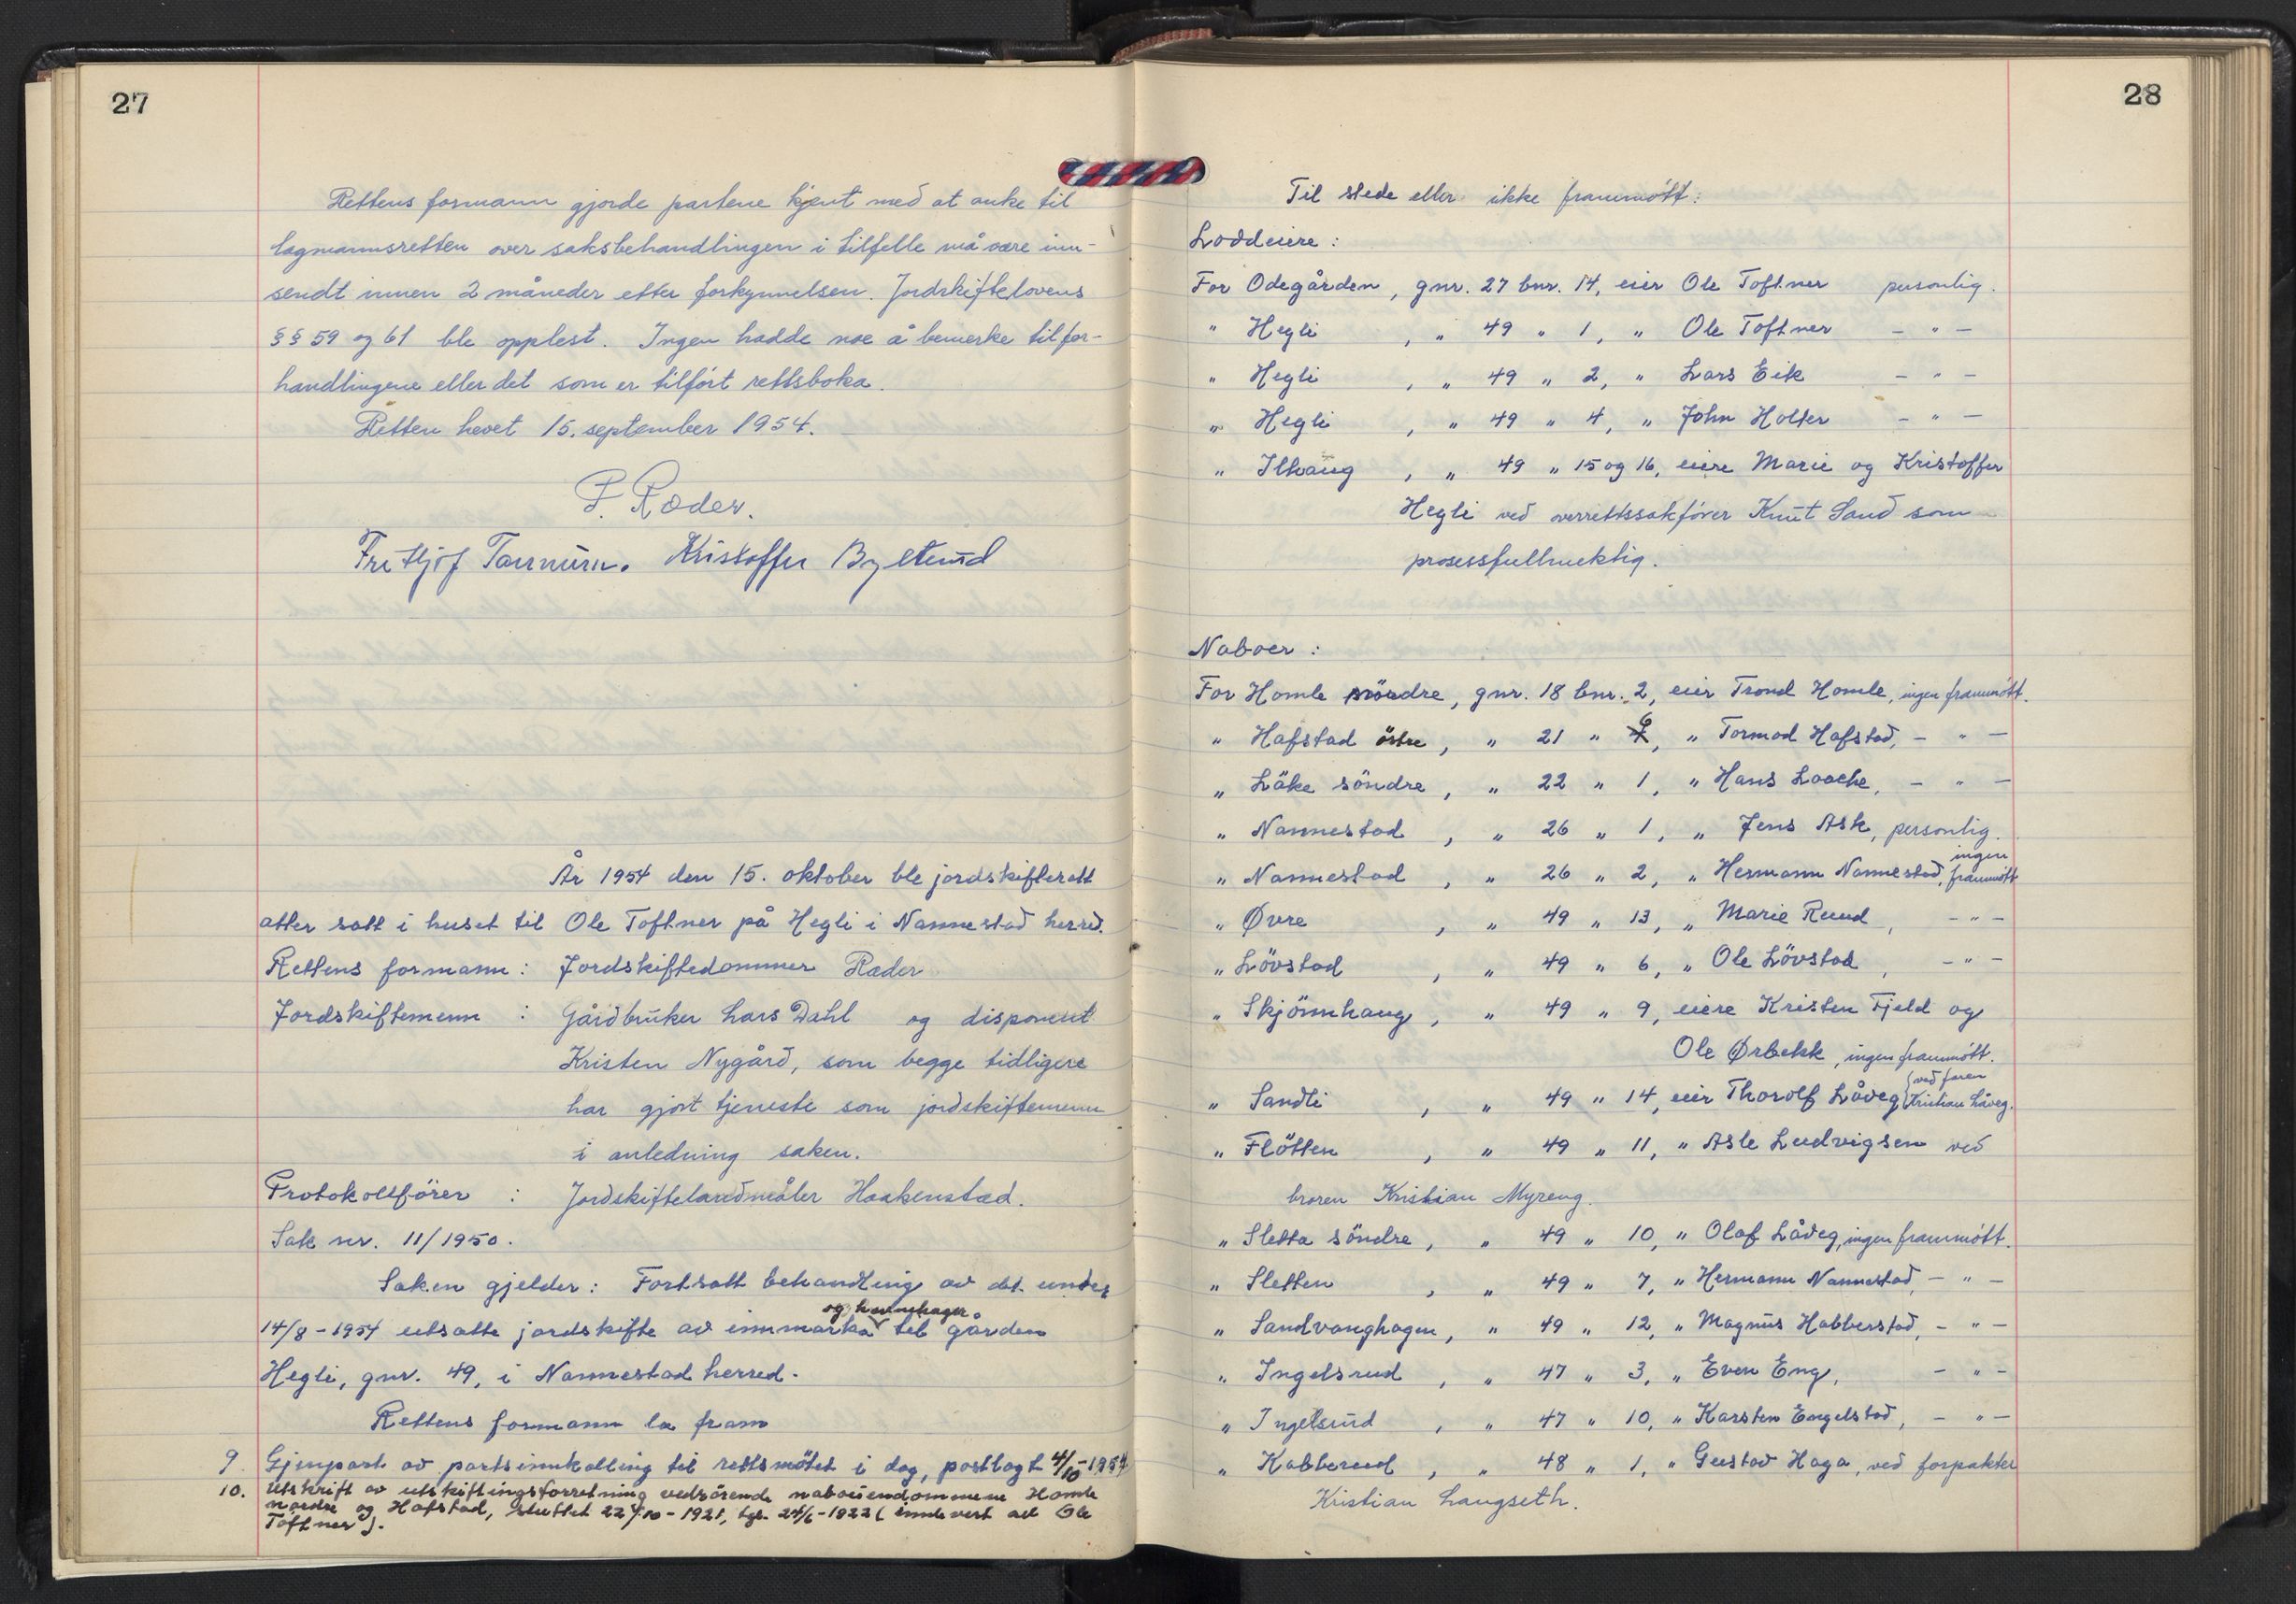 27
Rettens formann gjorde partene kjent med at anke til
lagmannsretten over saksbehandlingen i tilfelle må være inn-
sendt innen 2 måneder etter forkynnelsen. Jordskiftelovens
§§ 59 og 61 ble opplest. Ingen hadde noe å bemerke til for-
handlingene eller det som er tilført rettsboka.
Retten hevet 15. september 1954.
P. Ræder.
Fritjof Tannum. Kristoffer Byltrud
År 1954 den 15. oktober ble jordskifterett
atter satt i huset til Ole Toftner på Hegli i Nannestad herred.
Rettens formann : Jordskiftedommer Ræder
Jordskiftemenn : Gårdbruker Lars Dahl og disponent
Kristen Nygård, som begge tidligere
har gjort tjeneste som jordskiftemenn
i anledning saken.
Protokollfører : Jordskiftelandmåler Haakenstad.
Sak nr. 11/1950.
Saken gjelder : Fortsatt behandling av det under
og havnehager
14/8 - 1954 utsatte jordskifte av innmarka til gården
Hegli, gnr. 49, i Nannestad herred.
Rettens formann la fram
9. Gjenpart av partsinnkalling til rettsmötet i dag, postlagt 4/10 - 1954
10. Utskrift av utskiftingsforretning vedrörende naboeiendommene Homle
nordre og Hafstad, sluttet 22/10 - 1921, tgl. 24/6 - 1922 (innlevert av Ole
Toftner).
28
Til stede eller ikke frammött :
Loddeiere :
For Ödegården, gnr. 27 bnr. 14, eier Ole Toftner personlig.
" Hegli , " 49 " 1, " Ole Toftner - " -
" Hegli , " 49 " 2, " Lars Eik - " -
" Hegli , " 49 " 4, " John Holter - " -
" Ilhaug , " 49 " 15 og 16, eiere Marie og Kristoffer
Hegli ved overrettssakförer Knut Sand som
prosessfullmektig.
Naboer :
For Homle nördre, gnr. 18 bnr. 2, eier Trond Homle, ingen frammött.
" Hafstad östre, " 21 " 6, " Tormod Hafstad, - " -
" Låke söndre, " 22 " 1, " Hans Laache, - " -
" Nannestad , " 26 " 1, " Jens Ask, personlig.
" Nannestad , " 26 " 2, " Hermann Nannestad, ingen frammött
" Øvre , " 49 " 13, " Marie Ruud, - " -
" Lövstad , " 49 " 6, " Ole Lövstad , - " -
" Skjönnhaug, " 49 " 9, eiere Kristen Fjeld og
Ole Ørbekk, ingen frammött.
" Sandli , " 49 " 14, eier Thorolf Låveg (ved faren Kristian Låveg.
" Flötten , " 49 " 11, " Asle Ludvigsen ved
broren Kristian Myreng.
" Sletta söndre, " 49 " 10, " Olaf Låveg, ingen frammött.
" Sletten , " 49 " 7, " Hermann Nannestad, - " -
" Sandvanghagen, " 49 " 12, " Magnus Habberstad, - " -
" Ingelsrud , " 47 " 3, " Even Eng, - " -
" Ingelsrud , " 47 " 10, " Karsten Engelstad, - " -
" Kabberud , " 48 " 1, " Gustav Haga, ved forpakter
Kristian Langseth.